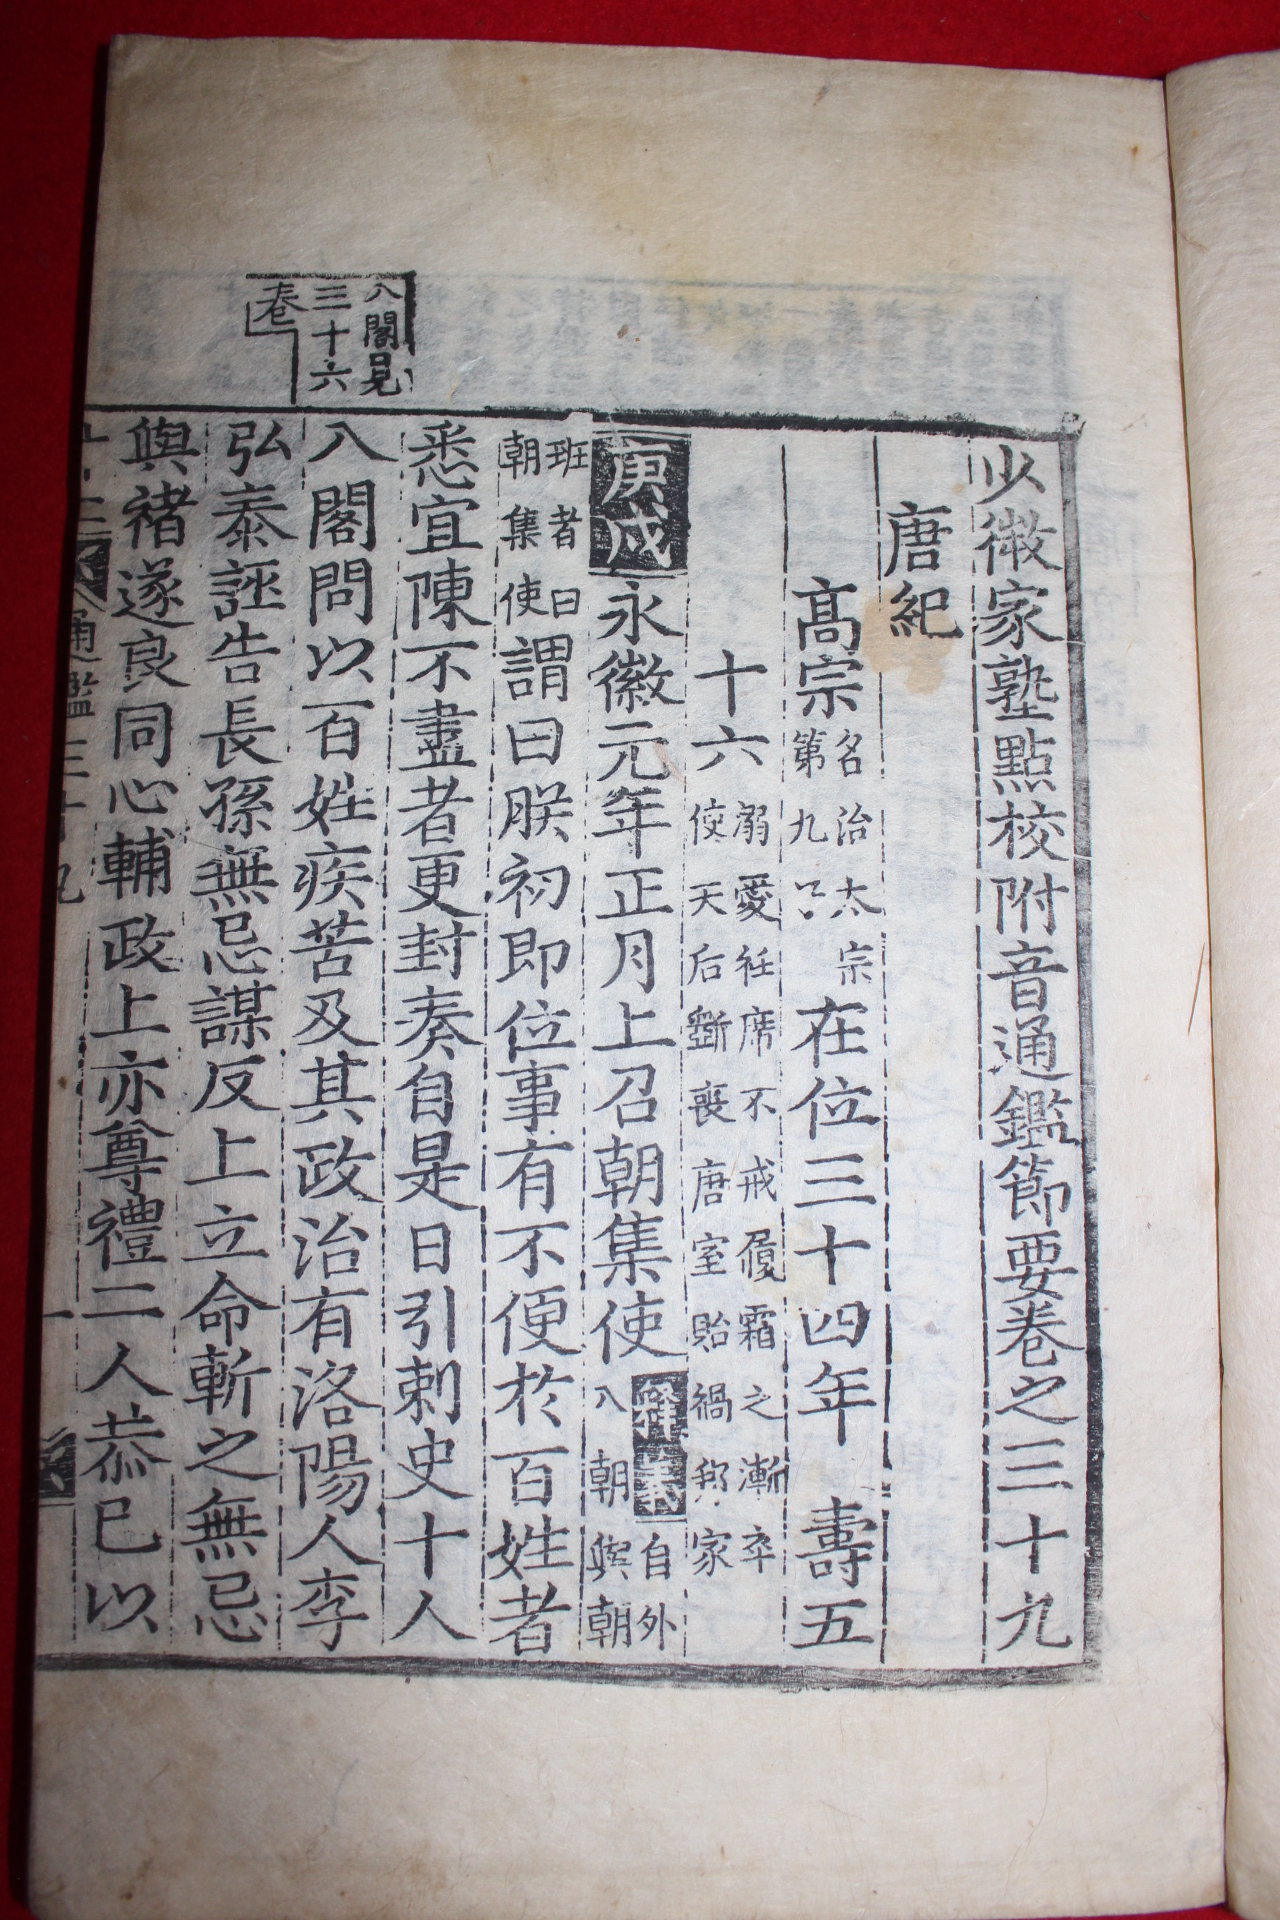 入閣見
三十六
卷
少微家塾點校附音通鑑節要卷之三十九
唐紀
高宗名治太宗第九子在位三十四年 壽五
十六溺愛衽席不戒履霜之漸卒使天后斵喪唐室貽禍邦家
庚戌永徽元年正月上召朝集使釋義自外入朝與朝
班者曰朝集使謂曰朕初即位事有不便於百姓者
悉宜陳不盡者更封奏自是日引刺史十人
入閣問以百姓疾苦及其政治有洛陽人李
弘泰誣告長孫無忌謀反上立命斬之無忌
與褚遂良同心輔政上亦尊禮二人恭已以
通鑑三十九 一